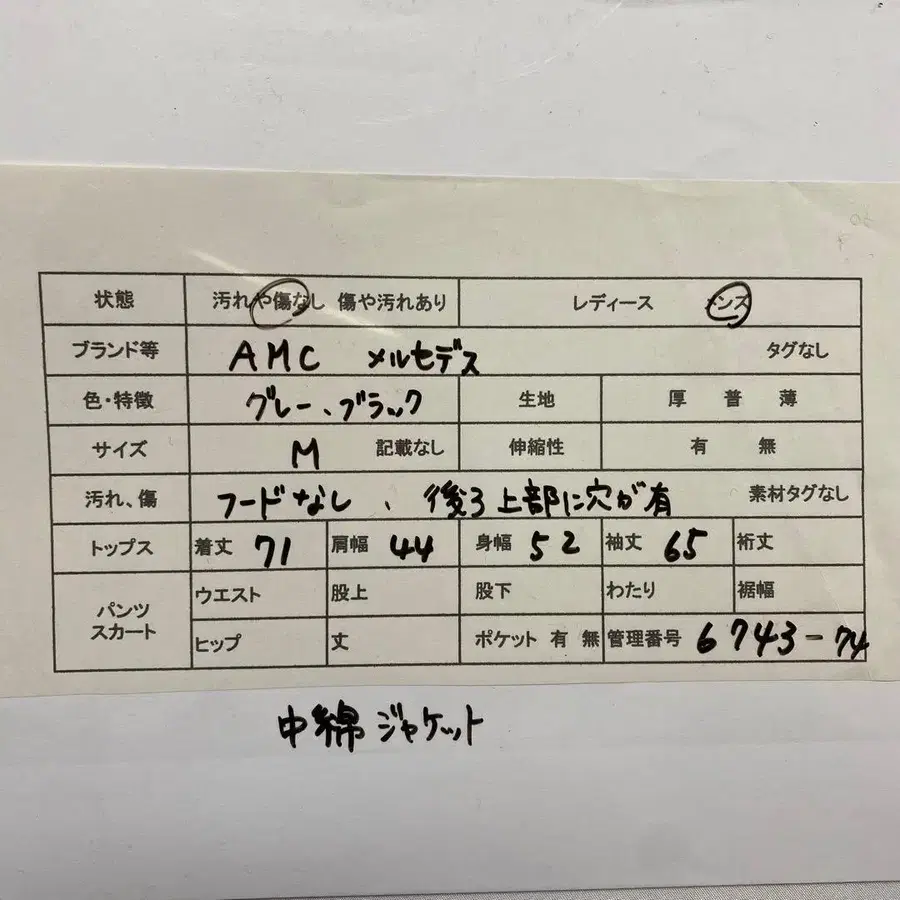 状態 汚れや傷なし 傷や汚れあり レディース メンズ
ブランド等 AMC メルセデス タグなし
色・特徴 グレー、ブラック 生地 厚 普 薄
サイズ M 記載なし 伸縮性 有 無
汚れ、傷 フードなし、後ろ上部に穴が有 素材タグなし
トップス 着丈 71 肩幅 44 身幅 52 袖丈 65 裄丈
パンツ スカート ウエスト 股上 股下 わたり 裾幅
ヒップ 丈 ポケット 有 無 管理番号 6743-74
中綿ジャケット